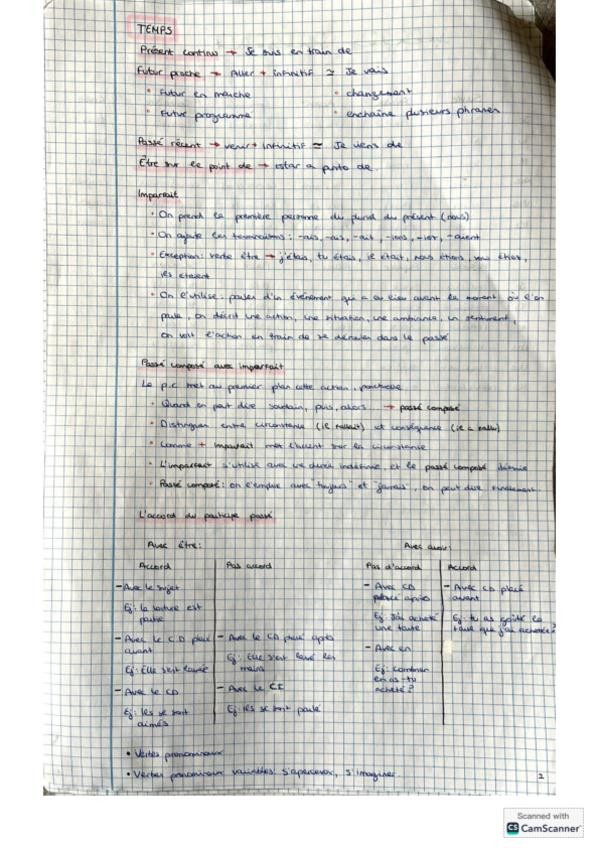 TEMPS
Présent continu → Je suis en train de
Futur proche → Aller + infinitif ≃ Je vais
• Futur en marche • changement
• Futur programme • enchaîne plusieurs phrases
Passé récent → venir + infinitif ≃ Je viens de
Être sur le point de → estar a punto de
Imparfait
• On prend la première personne du pluriel du présent (nous)
• On ajoute les terminaisons: -ais, -ais, -ait, -ions, -iez, -aient
• Exception: verbe être → j'étais, tu étais, il était, nous étions, vous étiez,
ils étaient
• On l'utilise: parler d'un événement qui a eu lieu avant le moment où l'on
parle, on décrit une action, une situation, une ambiance, un sentiment,
on voit l'action en train de se dérouler dans le passé
Passé composé avec imparfait
Le p.c met au premier plan cette action, ponctuelle
• Quand on peut dire soudain, puis, alors → passé composé
• Distinguer entre circonstance (il fallait) et conséquence (il a fallu)
• Comme + imparfait met l'accent sur la circonstance
• L'imparfait s'utilise avec un durée indéfinie, et le passé composé définie
• Passé composé: on l'emploie avec "toujours" et "jamais", on peut dire finalement
L'accord du participe passé
Avec être: Avec avoir:
Accord Pas accord Pas d'accord Accord
- Avec le sujet
Ej: la voiture est
partie
- Avec CD
placé après
Ej: J'ai acheté
une tarte
- Avec CD placé
avant
Ej: tu as goûté la
tarte que j'ai achetée?
- Avec le CD placé
avant
Ej: Elle s'est lavée
- Avec le CD placé après
Ej: Elle s'est lavé les
mains
- Avec en
Ej: combien
en as-tu
acheté?
- Avec le CD
Ej: Ils se sont
aimés
- Avec le CI
Ej: Ils se sont parlé
• Verbes pronominaux
• Verbes pronominaux variables: s'apercevoir, s'imaginer
2
Scanned with
CS CamScanner